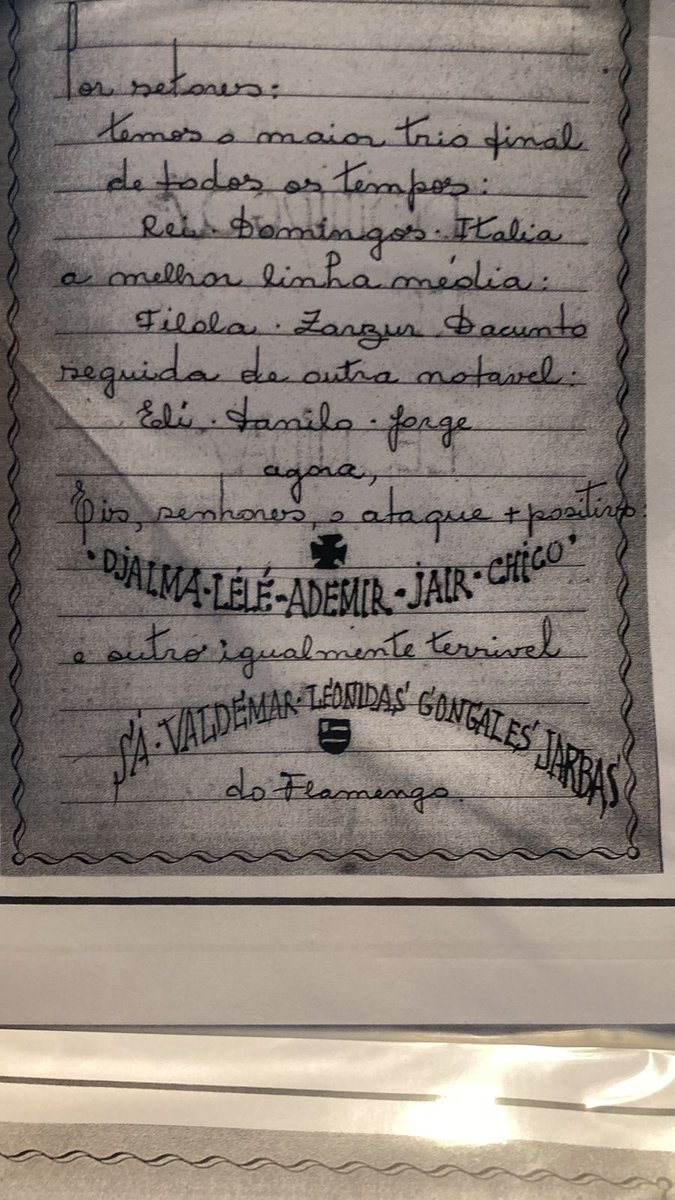 Por setores:
temos o maior trio final
de todos os tempos:
Rei · Domingos · Italia
a melhor linha média:
Filola · Zarzur Dacunto
seguida de outra notavel:
Eli · Danilo · Jorge
agora,
Eis, senhores, o ataque + positivo:
• DJALMA · LÉLÉ - ADEMIR · JAIR · CHICO •
e outro igualmente terrivel
SÁ · VALDEMAR · LEONIDAS GONGALES JARBAS
do Flamengo.